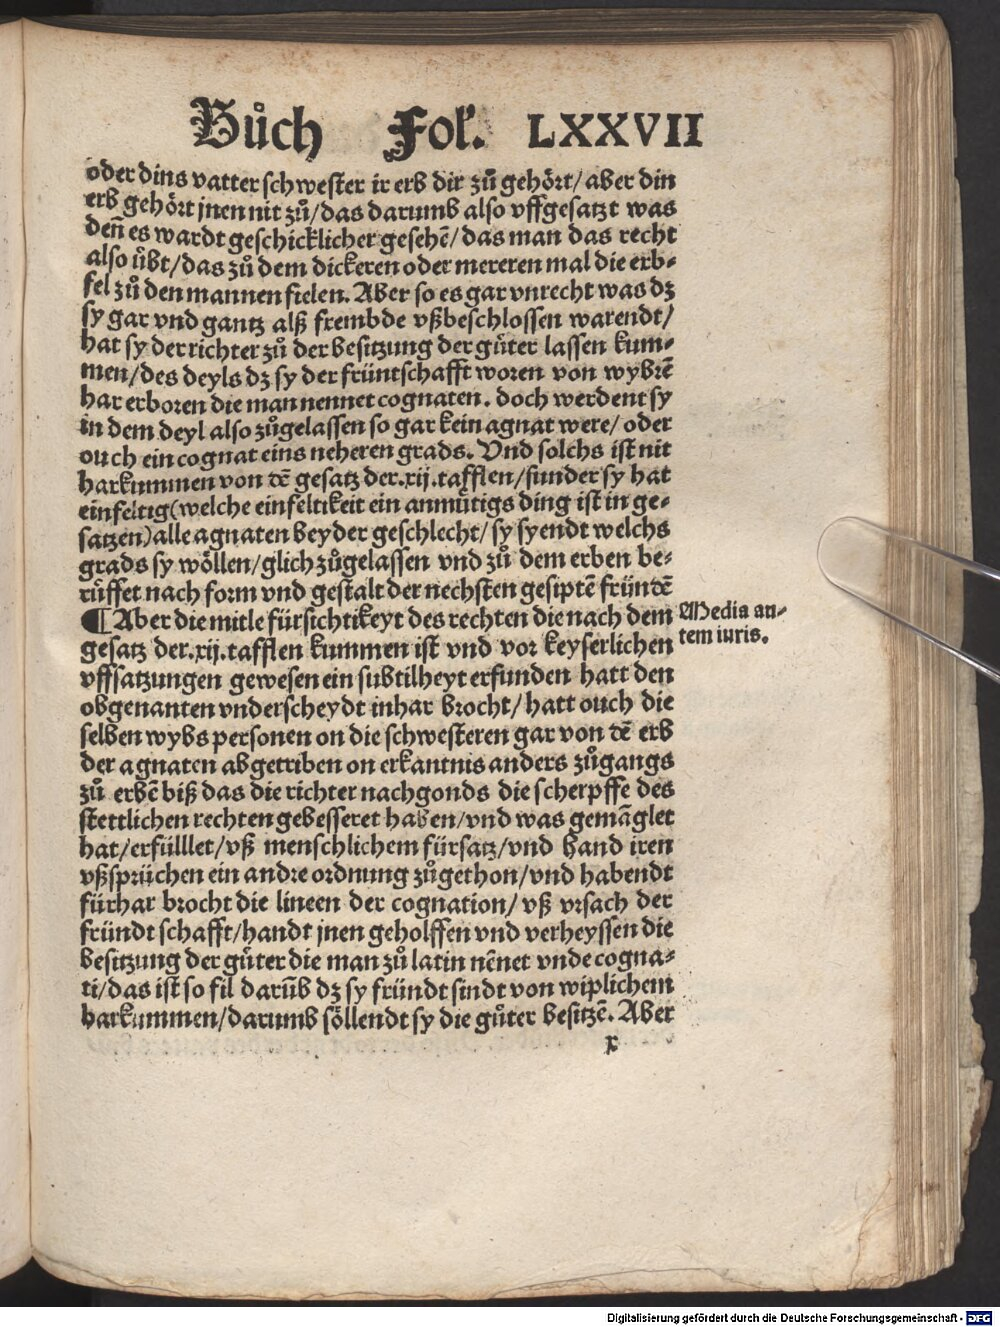 Bůch Fol'. LXXVII
oder dins vatter schwester ir erb dir zů gehört/ aber din
erb gehört jnen nit zů/ das darumb also vffgesatzt was
deñ es wardt geschicklicher gesehē/ das man das recht
also ůbt/ das zů dem dickeren oder mereren mal die erb-
fel zů den mannen fielen. Aber so es gar vnrecht was dz
sy gar vnd gantz alß frembde vßbeschlossen warendt/
hat sy der richter zů der besitzung der gůter lassen kum-
men/ des deyls dz sy der früntschafft woren von wybrē
har erboren die man nennet cognaten. doch werdent sy
in dem deyl also zůgelassen so gar kein agnat were/ oder
ouch ein cognat eins neheren grads. Vnd solchs ist nit
harkummen von dē gesatz der.xij.tafflen/ sunder sy hat
einfeltig(welche einfeltikeit ein anmůtigs ding ist in ge-
satzen)alle agnaten beyder geschlecht/ sy syendt welchs
grads sy wöllen/ glich zůgelassen vnd zů dem erben be-
rüffet nach form vnd gestalt der nechsten gesiptē fründē
¶ Aber die mitle fürsichtikeyt des rechten die nach dem
Media au-
tem iuris.
gesatz der.xij.tafflen kummen ist vnd vor keyserlichen
vffsatzungen gewesen ein subtilheyt erfunden hatt den
obgenanten vnderscheydt inhar brocht/ hatt ouch die
selben wybs personen on die schwesteren gar von dē erb
der agnaten abgetriben on erkantnis anders zůgangs
zů erbē biß das die richter nachgonds die scherpffe des
stettlichen rechten gebesseret haben/ vnd was gemāglet
hat/ erfülllet/ vß menschlichem fürsatz/ vnd hand iren
vßsprüchen ein andre ordnung zůgethon/ vnd habendt
fürhar brocht die lineen der cognation/ vß vrsach der
fründtschafft/ handt jnen geholffen vnd verheyssen die
besitzung der gůter die man zů latin nēnet vnde cogna-
ti/ das ist so fil darūb dz sy fründt sindt von wiplichem
harkummen/ darumb söllendt sy die gůter besitzē. Aber
x
Digitalisierung gefördert durch die Deutsche Forschungsgemeinschaft - DFG